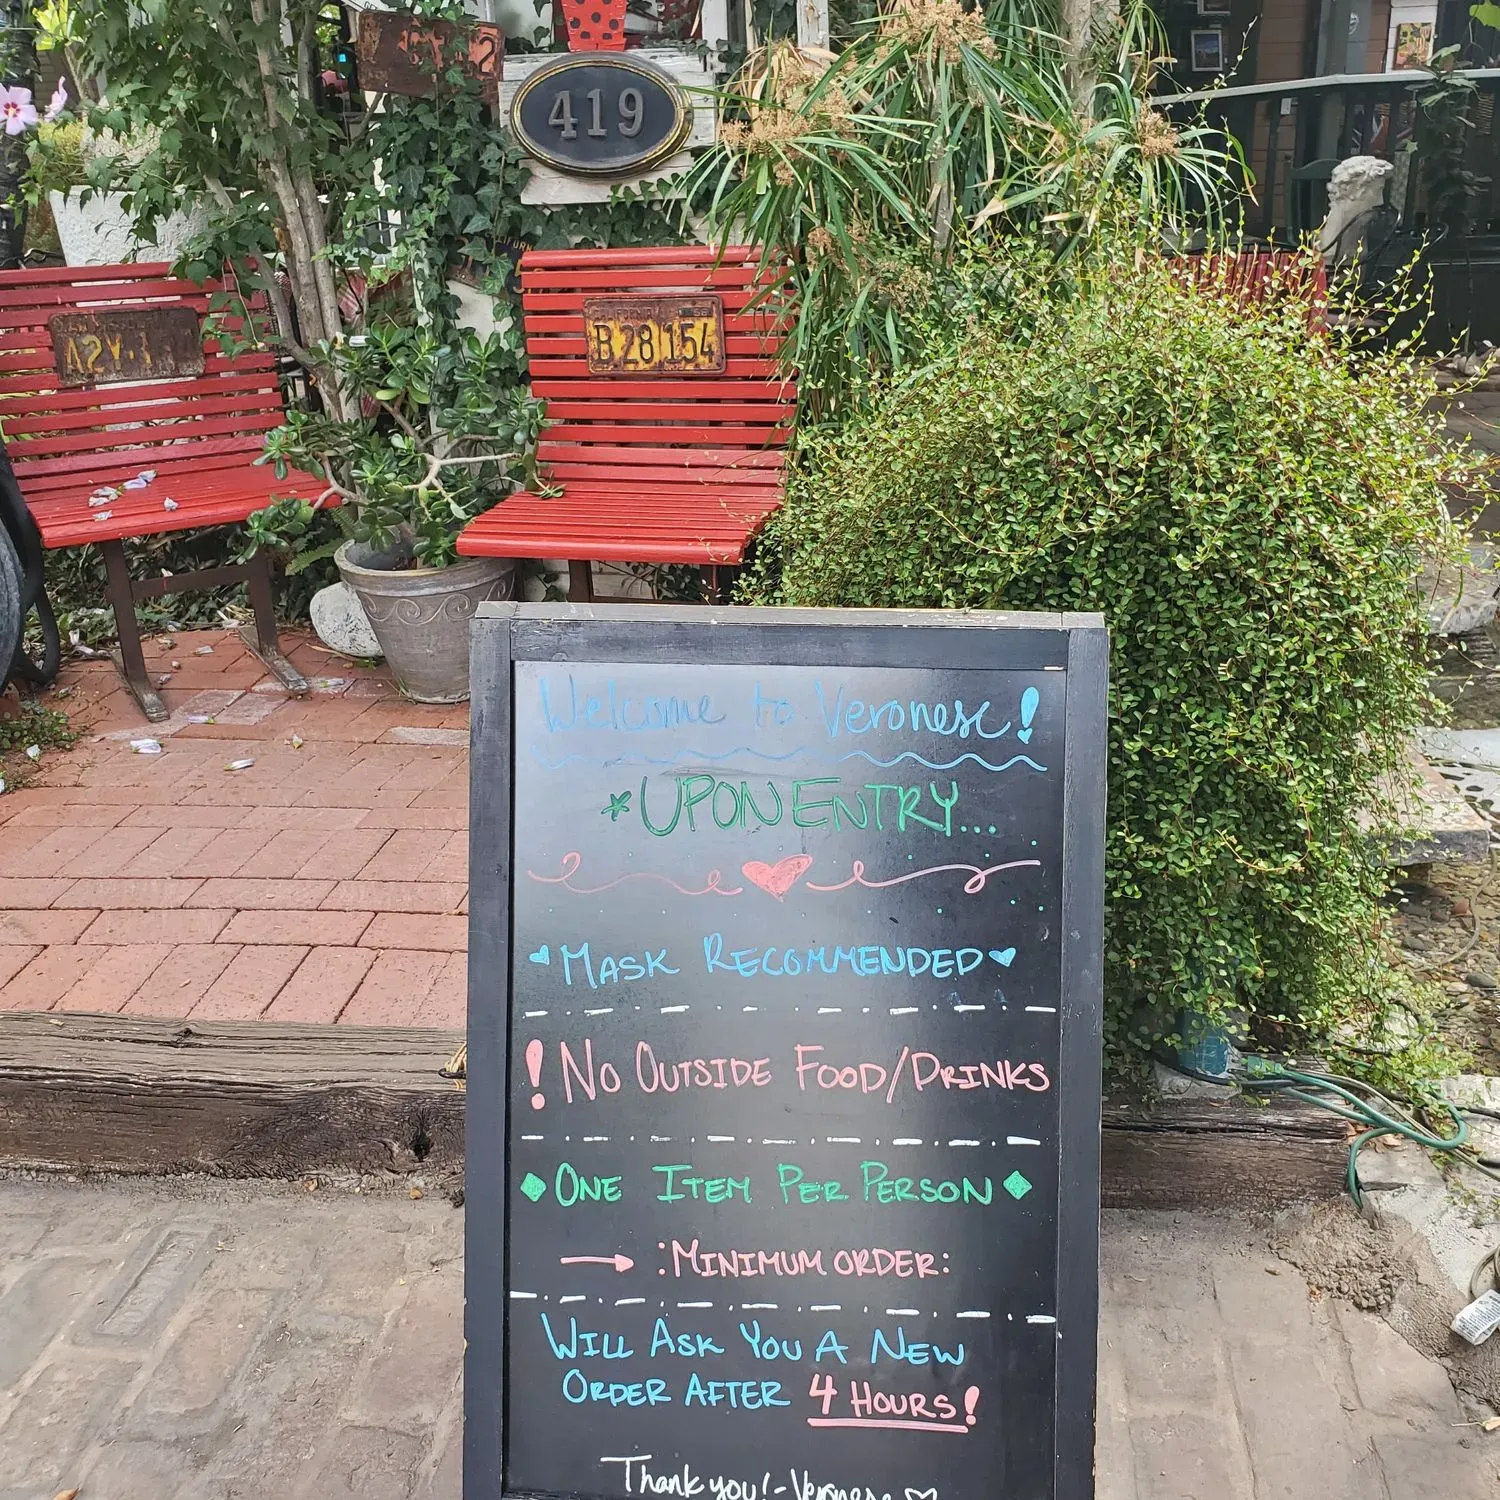 419
CALIFORNIA
B 28 154
Welcome to Veronese!
*UPON ENTRY...
MASK RECOMMENDED
! NO OUTSIDE FOOD/DRINKS
ONE ITEM PER PERSON
:MINIMUM ORDER:
WILL ASK YOU A NEW
ORDER AFTER 4 HOURS!
Thank you! - Veronese